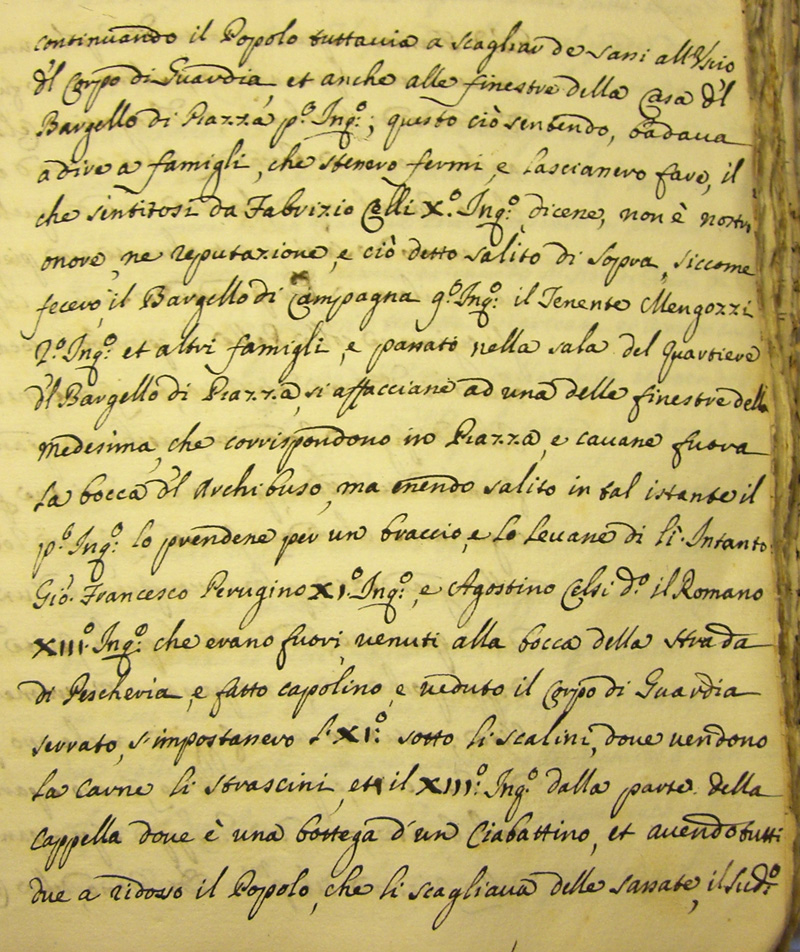 continuando il Popolo tuttavia a scagliar de sassi all'Uscio
d'l Corpo di Guardia, et anche alle finestre della Casa d'l
Bargello di Piazza p.º Inq.º; questo ciò sentendo, badava
a dire a famigli, che stessero fermi, e lasciassero fare, il
che sentitosi da Fabrizio Celli X.º Inq.º disse, non è nostro
onore, ne reputazione, e ciò detto salito di sopra, siccome
fecero il Bargello di Campagna 9.º Inq.º il Tenente Mengozzi
2.º Inq.º et altri famigli, e passato nella sala del quartiere
d'l Bargello di Piazza, si affacciasse ad una delle finestre della
medesima, che corrispondono in Piazza, e cavasse fuora
la bocca d'l Archibuso, ma essendo salito in tal istante il
p.º Inq.º lo prendesse per un braccio, e lo levasse di lì. Intanto
Gio. Francesco Perugino XI.º Inq.º, e Agostino Celsi d.º il Romano
XIII.º Inq.º che erano fuori, venuti alla bocca della strada
di Pescheria, e fatto capolino, e veduto il Corpo di Guardia
serrato, s'impostassero l'XI.º sotto li scalini, dove vendono
la carne li strascini, et il XIII.º Inq.º dalla parte della
Cappella dove è una bottega d'un Ciabattino, et avendo tutti
due a ridosso il Popolo, che li scagliava delle sassate, il sud.º